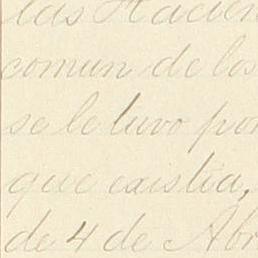 las Hacien
comun de los
se le tuvo por
que existia,
de 4 de Abr